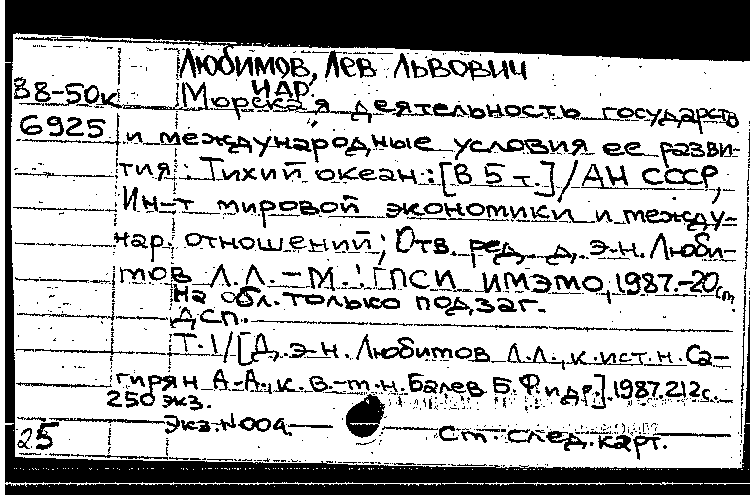 Любимов, Лев Львович
нар.
88-50к Морская деятельность государств
6925 и международные условия ее разви-
тия: Тихий океан: [В 5 т.] / АН СССР,
Ин-т мировой экономики и между-
нар. отношений; Отв. ред. д. э. н. Люби-
мов Л.Л. - М.: ГПСИ ИМЭМО, 1987. - 20 см.
на обл. только подзаг.
ДСП.
Т. 1 / [Д. э. н. Любимов Л.Л., к. ист. н. Са-
гирян А.А., к. в.-т. н. Балев Б.Ф. и др.]. 1987. 212 с.
250 экз.
Экз. N 004
25 См. след. карт.